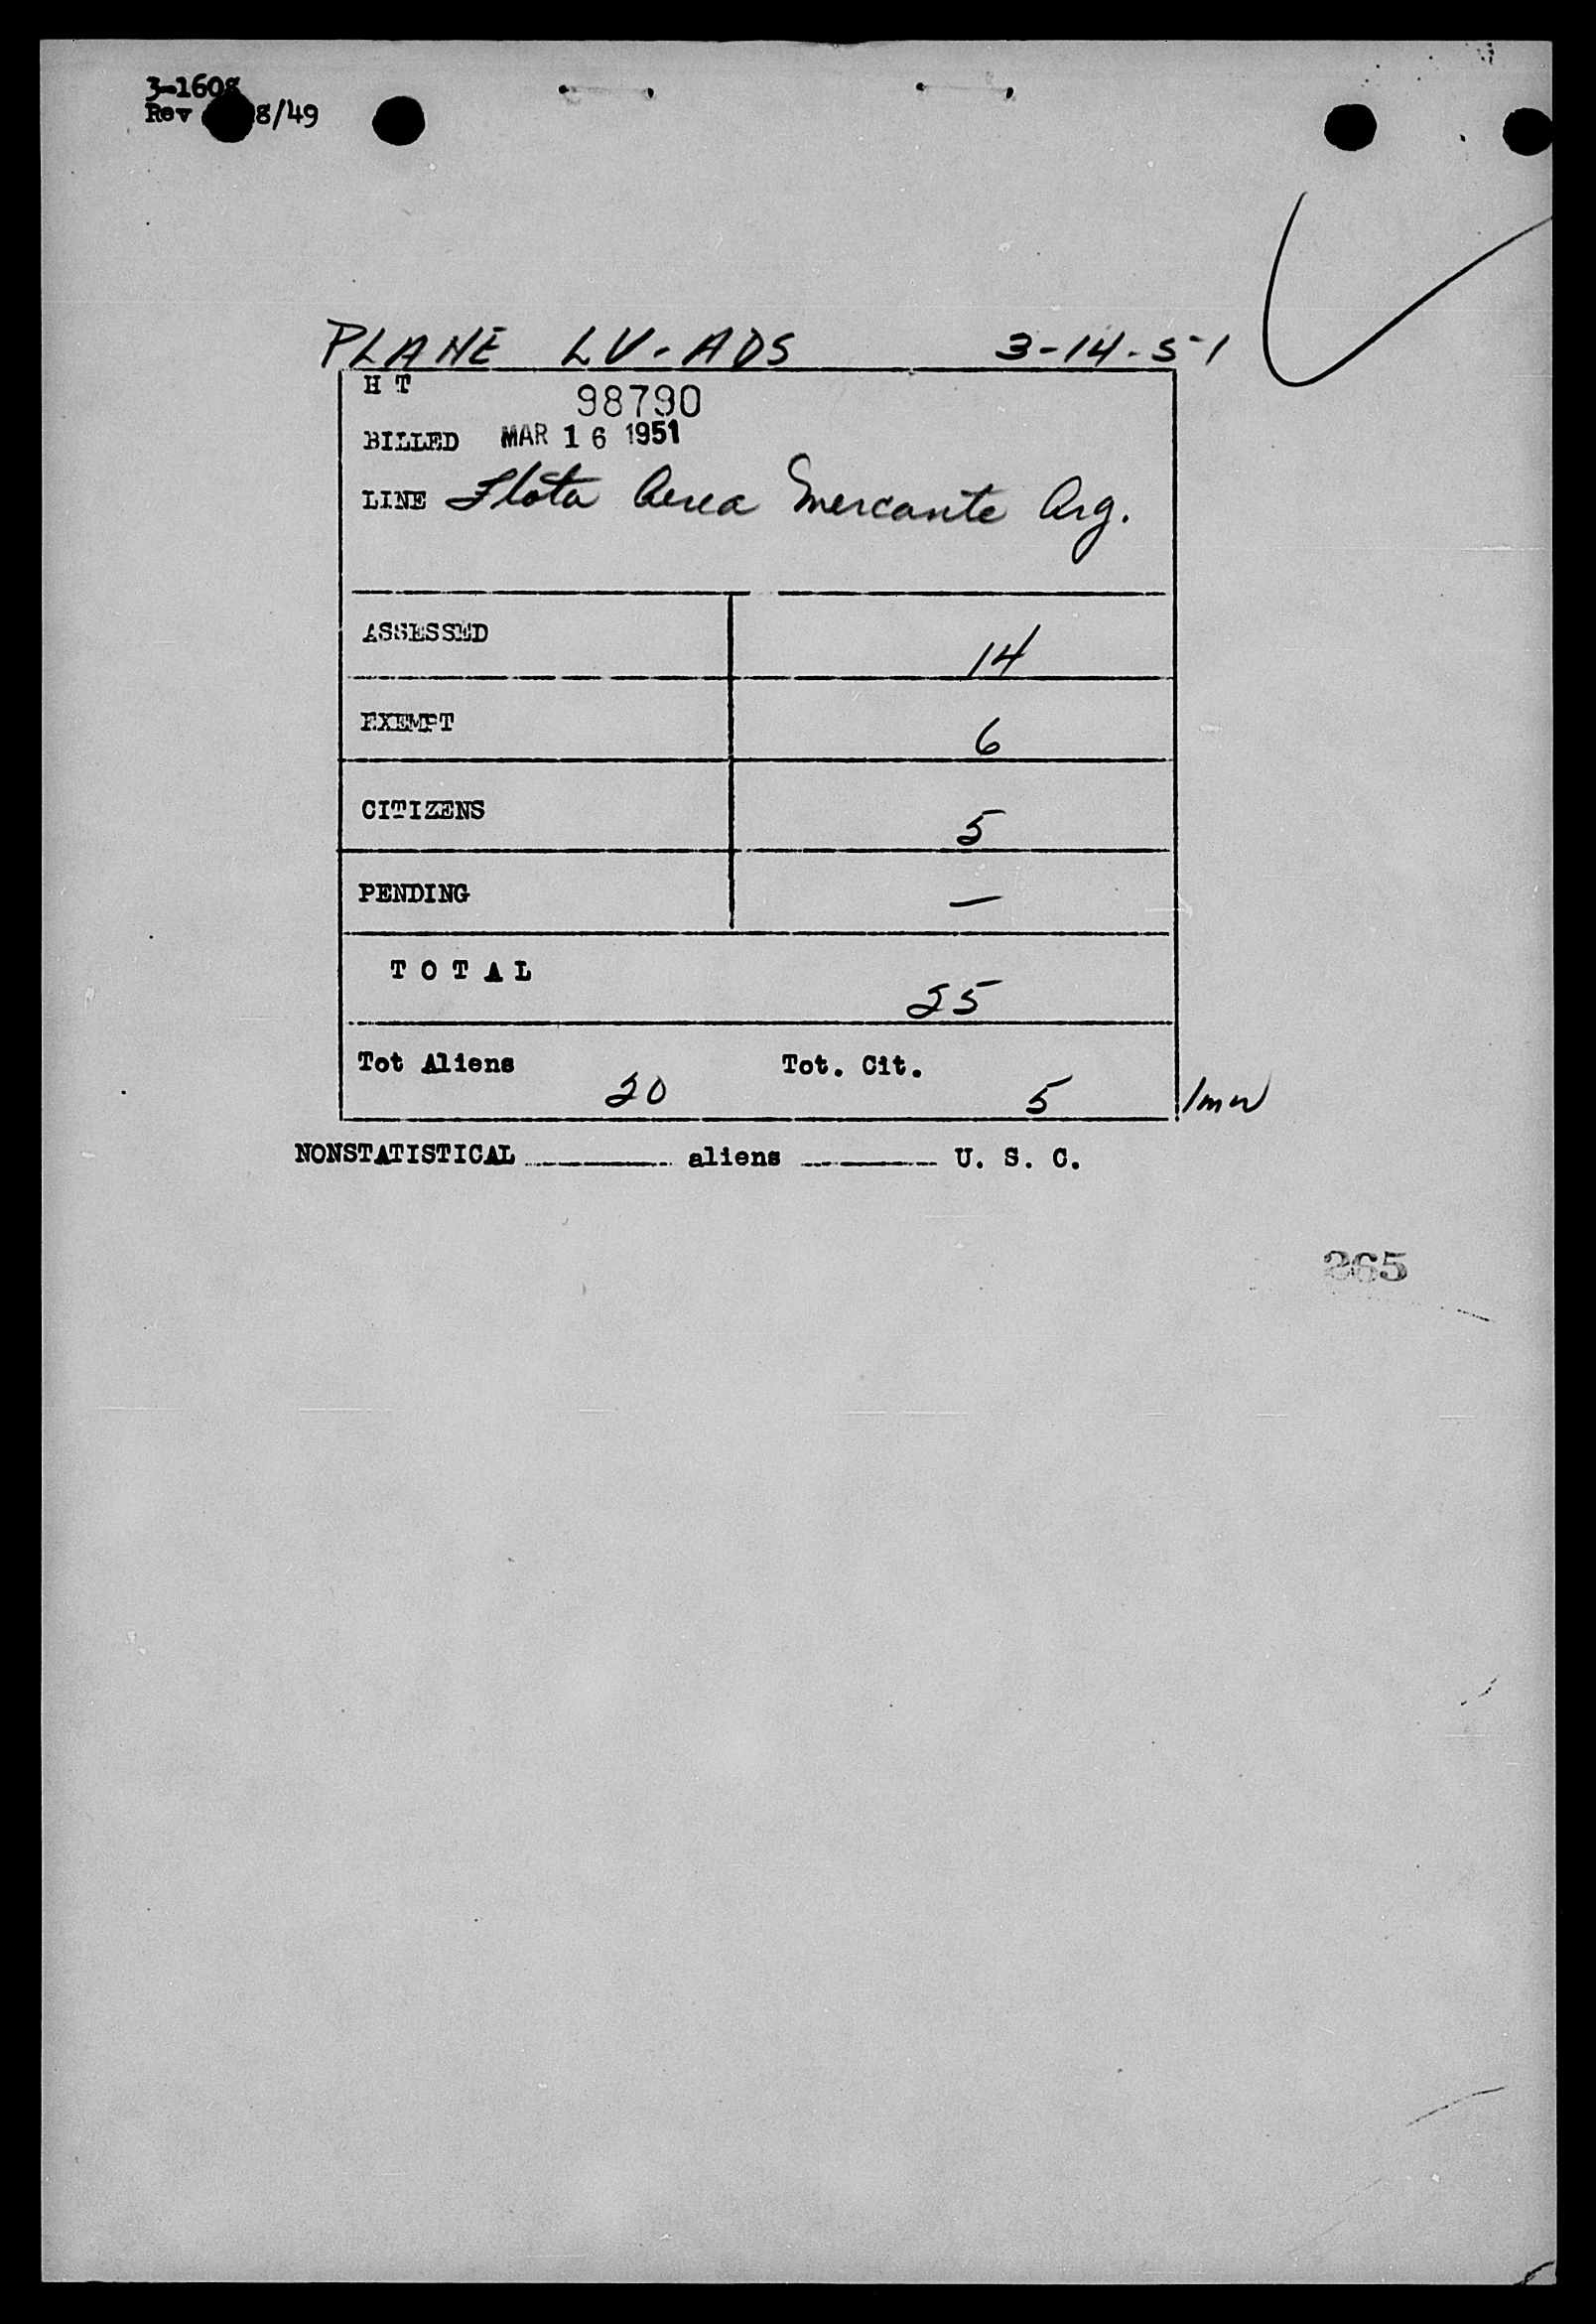 3-1608
Rev 8/49
PLANE LV-ADS 3-14-51
H T 98790
BILLED MAR 16 1951
LINE Flota Aerea Mercante Arg.
ASSESSED 14
EXEMPT 6
CITIZENS 5
PENDING —
TOTAL 25
Tot Aliens 20 Tot. Cit. 5
NONSTATISTICAL aliens U. S. C.
365